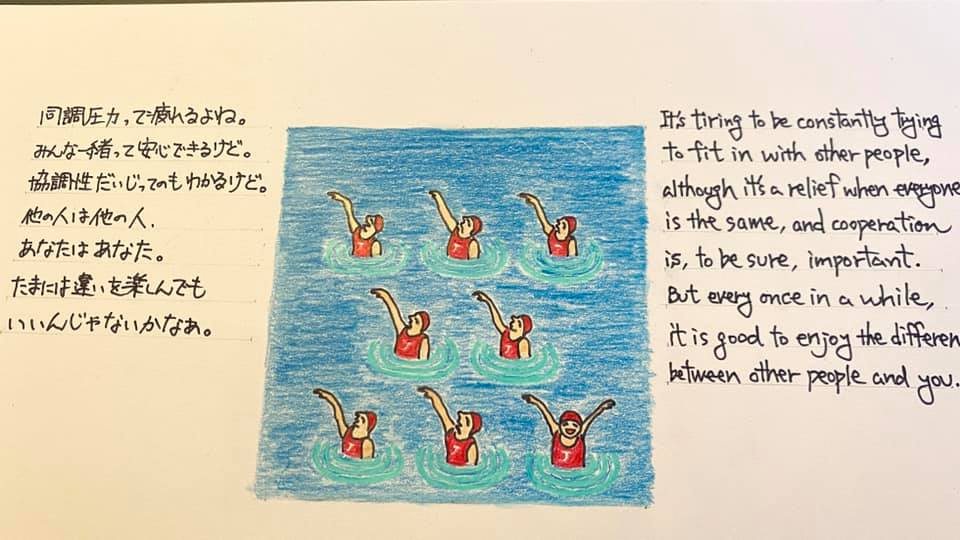 同調圧力って疲れるよね。
みんな一緒って安心できるけど。
協調性だいじってのもわかるけど。
他の人は他の人、
あなたはあなた。
たまには違いを楽しんでも
いいんじゃないかなぁ。
It's tiring to be constantly trying
to fit in with other people,
although it's a relief when everyone
is the same, and cooperation
is, to be sure, important.
But every once in a while,
it is good to enjoy the differen
between other people and you.